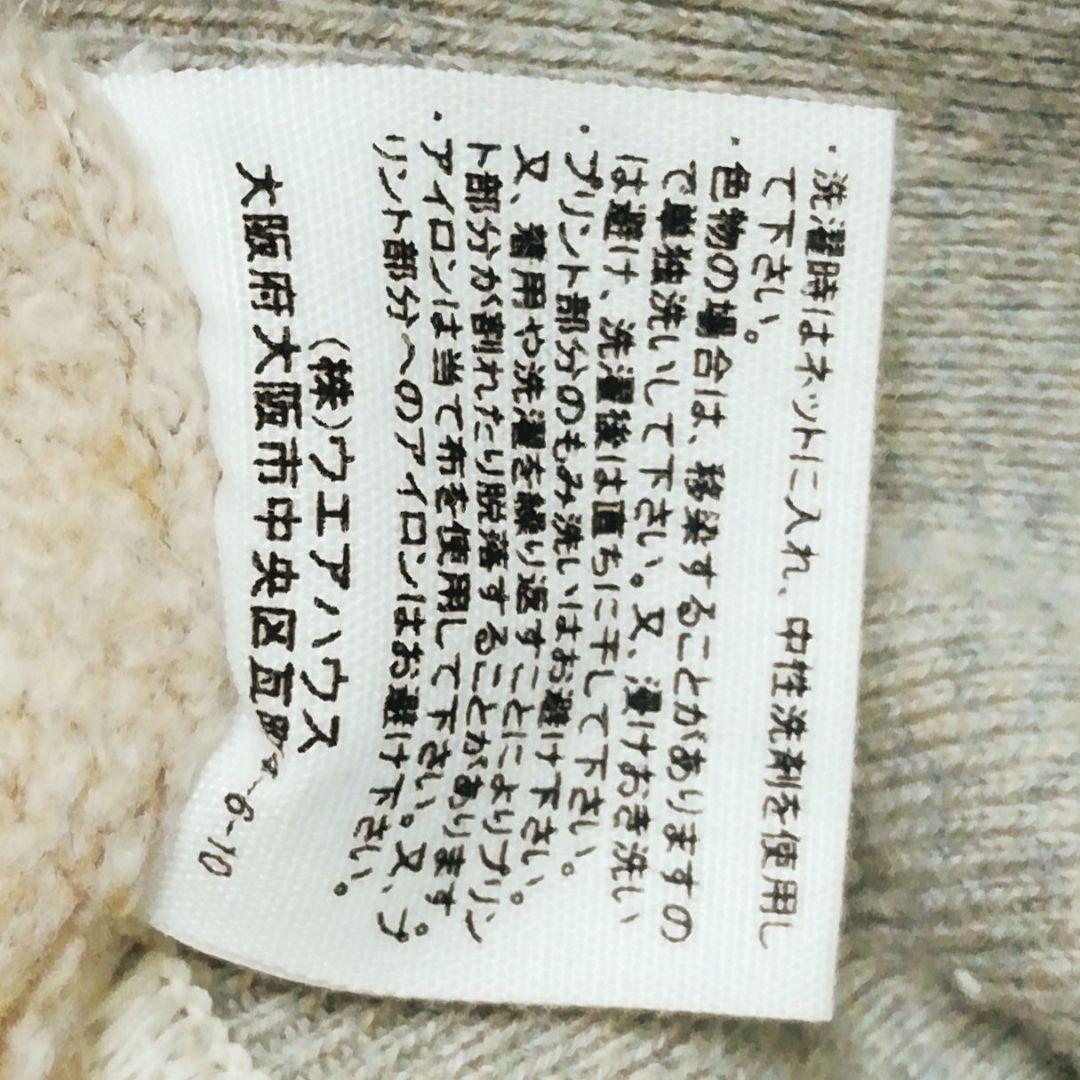 ・洗濯時はネットに入れ、中性洗剤を使用し
て下さい。
・色物の場合は、移染することがありますの
で単独洗いして下さい。又、漬けおき洗い
は避け、洗濯後は直ちに干して下さい。
・プリント部分のもみ洗いはお避け下さい。
又、着用や洗濯を繰り返すことによりプリン
ト部分が割れたり脱落することがあります。
・アイロンは当て布を使用して下さい。又、プ
リント部分へのアイロンはお避け下さい。
(株)ウエアハウス
大阪府大阪市中央区瓦町4-6-10